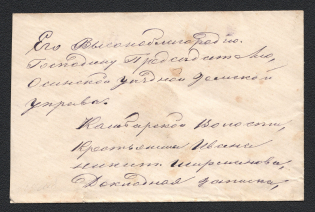 Его Высокоблагородію.
Господину Предсѣдателю,
Осинской уѣздной земской
управы.
Волости,
Крестьянина Ивана
Докладная записка,